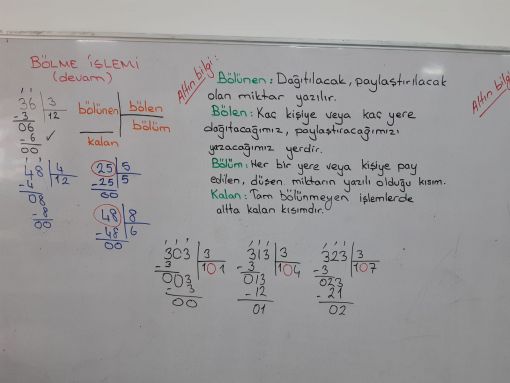 BÖLME İŞLEMİ
(devam)
36 3
-3 12
06
-6 ✓
00
48 4
-4 12
08
-8
00
bölünen bölen
bölüm
kalan
25 5
-25 5
00
48 8
-48 6
00
Altın bilgi:
Bölünen: Dağıtılacak, paylaştırılacak
olan miktar yazılır.
Bölen: Kaç kişiye veya kaç yere
dağıtacağımız, paylaştıracağımızı
yazacağımız yerdir.
Bölüm: Her bir yere veya kişiye pay
edilen, düşen miktarın yazılı olduğu kısım.
Kalan: Tam bölünmeyen işlemlerde
altta kalan kısımdır.
Altın bilgi
303 3
-3 101
003
-3
00
313 3
-3 104
013
-12
01
323 3
-3 107
023
-21
02